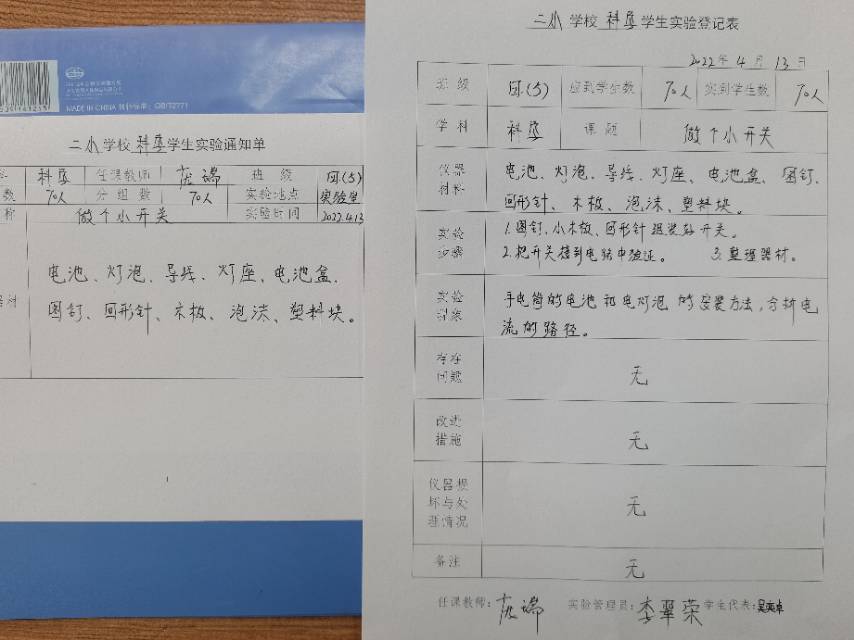 MADE IN CHINA
二小 学校 科学 学生实验通知单
科学 任课教师 班级 四.(5)
数 70人 分组数 70人 实验地点 实验室
称 做个小开关 实验时间 2022.4.13
电池、灯泡、导线、灯座、电池盒、
图钉、回形针、木板、泡沫、塑料块。
二小 学校 科学 学生实验登记表
2022年 4月 13日
班级 四.(5) 应到学生数 70人 实到学生数 70人
学科 科学 课题 做个小开关
仪器材料 电池、灯泡、导线、灯座、电池盒、图钉、
回形针、木板、泡沫、塑料块。
实验步骤 1.图钉、小木板、回形针组装好开关。
2.把开关接到电路中验证。 3.整理器材。
实验 手电筒的电池和电灯泡的安装方法,分析电
流的路径。
存在问题 无
改进措施 无
仪器损坏与处理情况 无
备注 无
任课教师: 实验管理员:李翠荣 学生代表: